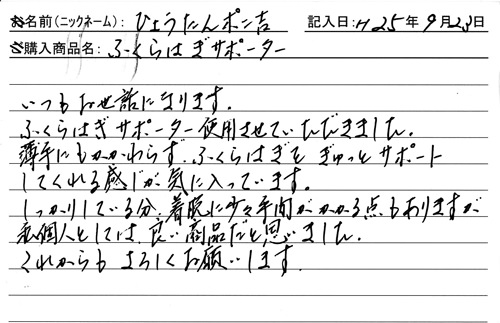 お名前(ニックネーム): ひょうたんポン吉 記入日: H25年9月23日
ご購入商品名: ふくらはぎサポーター
いつもお世話になります。
ふくらはぎサポーター使用させていただきました。
薄手にもかかわらず、ふくらはぎをぎゅっとサポート
してくれる感じが気に入っています。
しっかりしている分、着脱に少々手間がかかる点もありますが
私個人としては、良い商品だと思いました。
これからもよろしくお願いします。